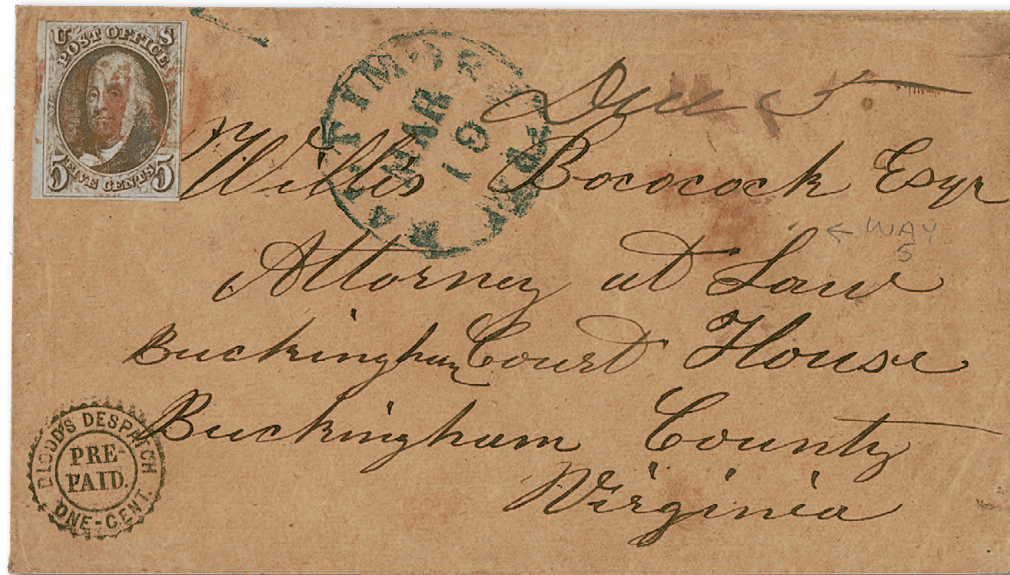 U S
POST OFFICE
5 5
FIVE CENTS
BALTIMORE Md.
MAR
19
Due 5
Willis Bococock Esqr
← WAY
5
Attorney at Law
Buckingham Court House
Buckingham County
Virginia
BLOOD'S DESPATCH
PRE-
PAID.
ONE-CENT.